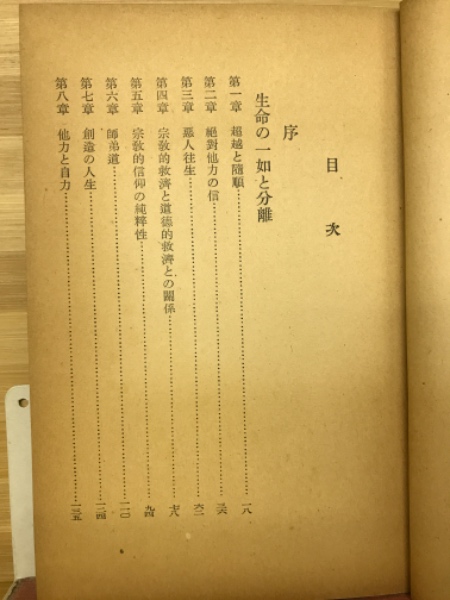 目次
序
生命の一如と分離
第一章 超越と隨順……一八
第二章 絕對他力の信……三六
第三章 惡人往生……六二
第四章 宗敎的救濟と道德的救濟との關係……七八
第五章 宗敎的信仰の純粹性……九四
第六章 師弟道……一一〇
第七章 創造の人生……一二四
第八章 他力と自力……一三五